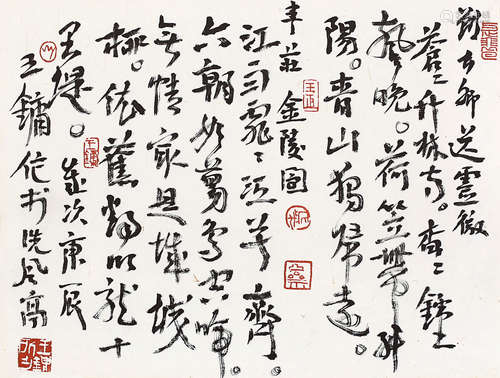 劉長卿送靈澈
蒼〻竹林寺。杳〻鐘
聲晚。荷笠帶斜
陽。青山獨歸遠。
韋莊 金陵圖
江雨霏〻江草齊。
六朝如夢鳥空啼。
無情最是臺城
柳。依舊煙籠十
里堤。歲次庚辰
王鏞作於